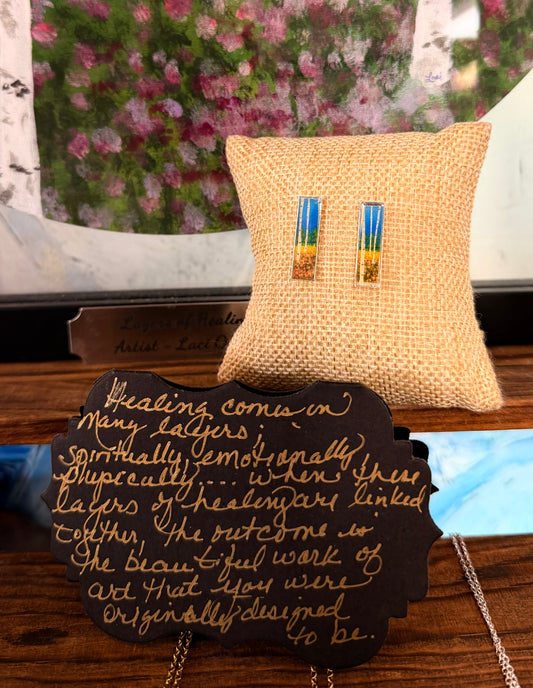 Laci
Layers of Healing
Artist - Laci
Healing comes in
many layers;
spiritually, emotionally,
phypically.... when these
layers of healing are linked
together, the outcome is
the beautiful work of
art that you were
originally designed
to be.